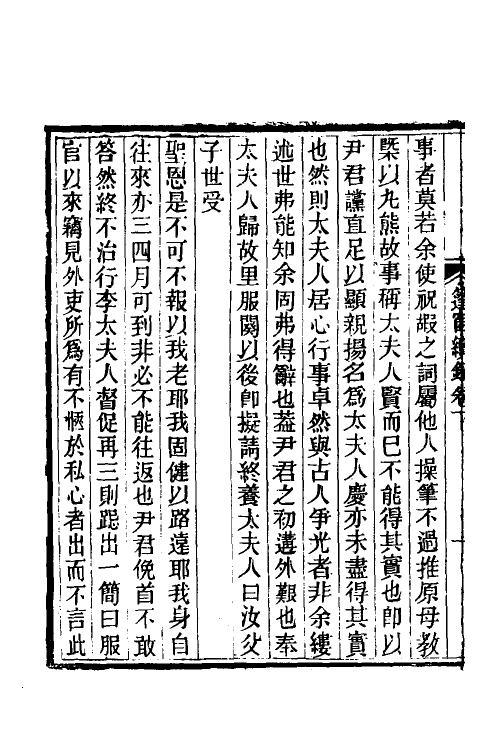 事者莫若余使祝嘏之詞屬他人操筆不過推原母教
槩以九熊故事稱太夫人賢而已不能得其實也卽以
尹君讜直足以顯親揚名爲太夫人慶亦未盡得其實
也然則太夫人居心行事卓然與古人爭光者非余縷
述世弗能知余固弗得辭也葢尹君之初遘外艱也奉
太夫人歸故里服闋以後卽擬請終養太夫人曰汝父
子世受
聖恩是不可不報以我老耶我固健以路遠耶我身自
往來亦三四月可到非必不能往返也尹君俛首不敢
答然終不治行李太夫人督促再三則跽出一簡曰服
官以來竊見外吏所爲有不愜於私心者出而不言此